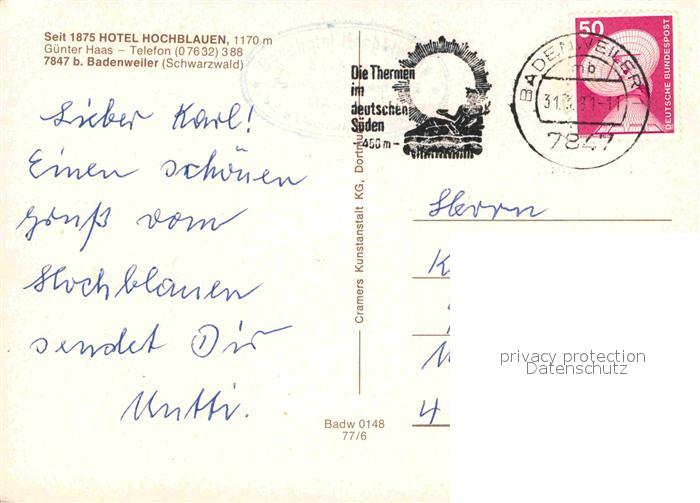 Seit 1875 HOTEL HOCHBLAUEN, 1170 m
Günter Haas – Telefon (0 76 32) 3 88
7847 b. Badenweiler (Schwarzwald)
Lieber Karl!
Einen schönen
Gruß vom
Hochblauen
sendet Dir
Mutti.
Cramers Kunstanstalt KG, Dortmund
Badw 0148
77/6
Die Thermen
im
deutschen
Süden
- 450 m -
BADENWEILER 1
mb
-11
7847
50
DEUTSCHE BUNDESPOST
Herrn
K
M
4
privacy protection
Datenschutz